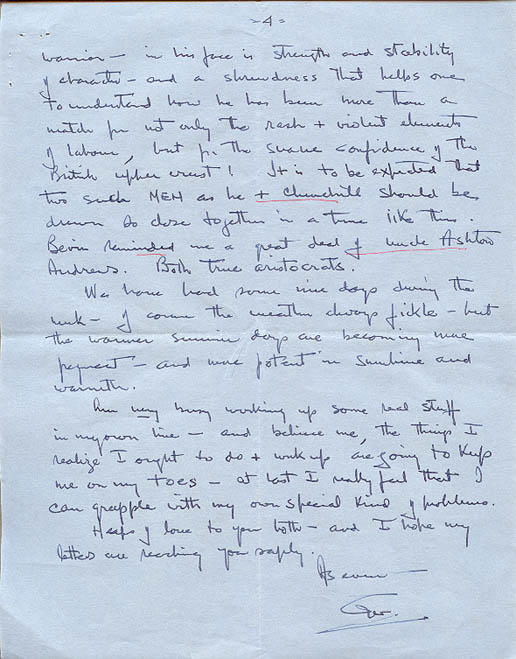 -4-
warrior - in his face is strength and stability
of character - and a shrewdness that helps one
to understand how he has been more than a
match for not only the rash + violent elements
of labour, but for the suave confidence of the
British upper crust! It is to be expected that
two such MEN as he + Churchill should be
drawn so close together in a time like this.
Bevin reminded me a great deal of uncle Ashton
Andrews. Both true aristocrats.
We have had some nice days during the
week - of course the weather always fickle - but
the warmer summer days are becoming more
frequent - and more potent in sunshine and
warmth.
Am very busy working up some real stuff
in my own line - and believe me, the things I
realize I ought to do + work up are going to keep
me on my toes - at last I really feel that I
can grapple with my own special kind of problems.
Heaps of love to you both - and I hope my
letters are reaching you safely.
As ever -